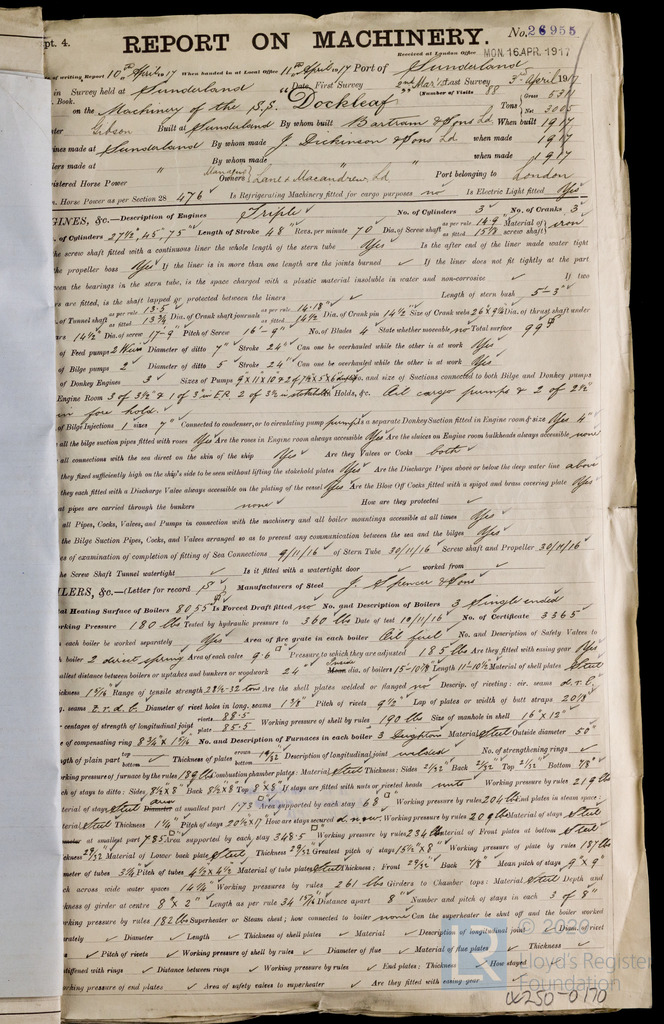 pt. 4.
REPORT ON MACHINERY. No. 26955
Received at London Office MON. 16 APR. 1917
of writing Report 10th April 1917 When handed in at Local Office 11th April 1917 Port of Sunderland
in Survey held at Sunderland Date, First Survey 2nd Mar Last Survey 3rd April 1917
Book. (Number of Visits 88
on the Machinery of the S.S. "Dockleaf" Tons Gross 5311 Net 3005
ter Gibson Built at Sunderland By whom built Bartram & Sons Ld When built 1917
ines made at Sunderland By whom made J. Dickinson & Sons Ld when made 1917
lers made at " By whom made " when made 1917
istered Horse Power Managers Owners Lane & Macandrew Ld Port belonging to London
. Horse Power as per Section 28 476 Is Refrigerating Machinery fitted for cargo purposes no Is Electric Light fitted Yes
GINES, &c.—Description of Engines Triple No. of Cylinders 3 No. of Cranks 3
. of Cylinders 27½, 45, 75" Length of Stroke 48" Revs. per minute 70 Dia. of Screw shaft as per rule 14.9 as fitted 15⅛ Material of screw shaft iron
the screw shaft fitted with a continuous liner the whole length of the stern tube Yes Is the after end of the liner made water tight
the propeller boss Yes If the liner is in more than one length are the joints burned ✓ If the liner does not fit tightly at the part
een the bearings in the stern tube, is the space charged with a plastic material insoluble in water and non-corrosive ✓ If two
rs are fitted, is the shaft lapped or protected between the liners Length of stern bush 5'-3"
. of Tunnel shaft as per rule 13.5 as fitted 13¾ Dia. of Crank shaft journals as per rule 14.18 as fitted 14½ Dia. of Crank pin 14½ Size of Crank webs 26 x 9⅛ Dia. of thrust shaft under
rs 14½ Dia. of screw 17-9 Pitch of Screw 16-9 No. of Blades 4 State whether moveable no Total surface 99
of Feed pumps 2 Weirs Diameter of ditto 7" Stroke 24" Can one be overhauled while the other is at work Yes
of Bilge pumps 2 Diameter of ditto 5 Stroke 24" Can one be overhauled while the other is at work Yes
of Donkey Engines 3 Sizes of Pumps No. and size of Suctions connected to both Bilge and Donkey pumps
Engine Room 3 of 3½ & 1 of 3" in E.R. 2 of 3½ in stokehold Holds, &c. Oil cargo pumps & 2 of 2½"
in fore hold.
of Bilge Injections 1 sizes 7" Connected to condenser, or to circulating pump pump Is a separate Donkey Suction fitted in Engine room & size Yes 4"
all the bilge suction pipes fitted with roses Yes Are the roses in Engine room always accessible Yes Are the sluices on Engine room bulkheads always accessible none
all connections with the sea direct on the skin of the ship Yes Are they Valves or Cocks both
they fixed sufficiently high on the ship's side to be seen without lifting the stokehold plates Yes Are the Discharge Pipes above or below the deep water line above
they each fitted with a Discharge Valve always accessible on the plating of the vessel Yes Are the Blow Off Cocks fitted with a spigot and brass covering plate Yes
at pipes are carried through the bunkers none How are they protected ✓
all Pipes, Cocks, Valves, and Pumps in connection with the machinery and all boiler mountings accessible at all times Yes
the Bilge Suction Pipes, Cocks, and Valves arranged so as to prevent any communication between the sea and the bilges Yes
es of examination of completion of fitting of Sea Connections 9/11/16 of Stern Tube 30/11/16 Screw shaft and Propeller 30/11/16
he Screw Shaft Tunnel watertight ✓ Is it fitted with a watertight door ✓ worked from ✓
ILERS, &c.—(Letter for record S) Manufacturers of Steel J. Spencer & Sons
al Heating Surface of Boilers 8055 Is Forced Draft fitted no No. and Description of Boilers 3 Single ended
orking Pressure 180 lbs Tested by hydraulic pressure to 360 lbs Date of test 10/11/16 No. of Certificate 3365
each boiler be worked separately Yes Area of fire grate in each boiler Oil fuel No. and Description of Safety Valves to
h boiler 2 direct spring Area of each valve 9.6 Pressure to which they are adjusted 185 lbs Are they fitted with easing gear Yes
allest distance between boilers or uptakes and bunkers or woodwork 24" Inside dia. of boilers 15-10⅛ Length 11-10½ Material of shell plates Steel
ickness 1 9/16 Range of tensile strength 28½-32 tons Are the shell plates welded or flanged no Descrip. of riveting: cir. seams d.r.l.
g. seams t.r.d.b. Diameter of rivet holes in long. seams 1⅜" Pitch of rivets 9½" Lap of plates or width of butt straps 20⅛
centages of strength of longitudinal joint rivets 88.5 plate 85.5 Working pressure of shell by rules 190 lbs Size of manhole in shell 16" x 12"
e of compensating ring No. and Description of Furnaces in each boiler 3 Deighton Material Steel Outside diameter 50"
gth of plain part top bottom Thickness of plates crown bottom 19/32 Description of longitudinal joint welded No. of strengthening rings ✓
orking pressure of furnace by the rules 189 lbs Combustion chamber plates: Material Steel Thickness: Sides 21/32 Back 21/32 Top 21/32 Bottom ⅞"
ch of stays to ditto: Sides 8½x8" Back 8½x8 Top 8"x8" If stays are fitted with nuts or riveted heads nuts Working pressure by rules 219 lbs
terial of stays Steel area at smallest part 1.73 Area supported by each stay 68 Working pressure by rules 204 lbs End plates in steam space:
terial Steel Thickness 1¼" Pitch of stays 20½x17 How are stays secured d. nuts Working pressure by rules 209 lbs Material of stays Steel
at smallest part 7.85 Area supported by each stay 348.5 Working pressure by rules 234 lbs Material of Front plates at bottom Steel
ickness 29/32 Material of Lower back plate Steel Thickness 29/32 Greatest pitch of stays Working pressure of plate by rules 187 lbs
meter of tubes 3¼ Pitch of tubes 4½ x 4½ Material of tube plates Steel Thickness: Front 29/32 Back ⅞" Mean pitch of stays 9" x 9"
ch across wide water spaces 14¼" Working pressures by rules 261 lbs Girders to Chamber tops: Material Steel Depth and
ickness of girder at centre 8" x 2" Length as per rule Distance apart 8" Number and pitch of stays in each 3 of 8"
orking pressure by rules 182 lbs Superheater or Steam chest; how connected to boiler none Can the superheater be shut off and the boiler worked
rately ✓ Diameter ✓ Length ✓ Thickness of shell plates ✓ Material ✓ Description of longitudinal joint ✓ Diam. of rivet
✓ Pitch of rivets ✓ Working pressure of shell by rules ✓ Diameter of flue ✓ Material of flue plates ✓ Thickness ✓
stiffened with rings ✓ Distance between rings ✓ Working pressure by rules ✓ End plates: Thickness ✓ How stayed ✓
orking pressure of end plates ✓ Area of safety valves to superheater ✓ Are they fitted with easing gear ✓
© 2020
Lloyd's Register
Foundation
LR